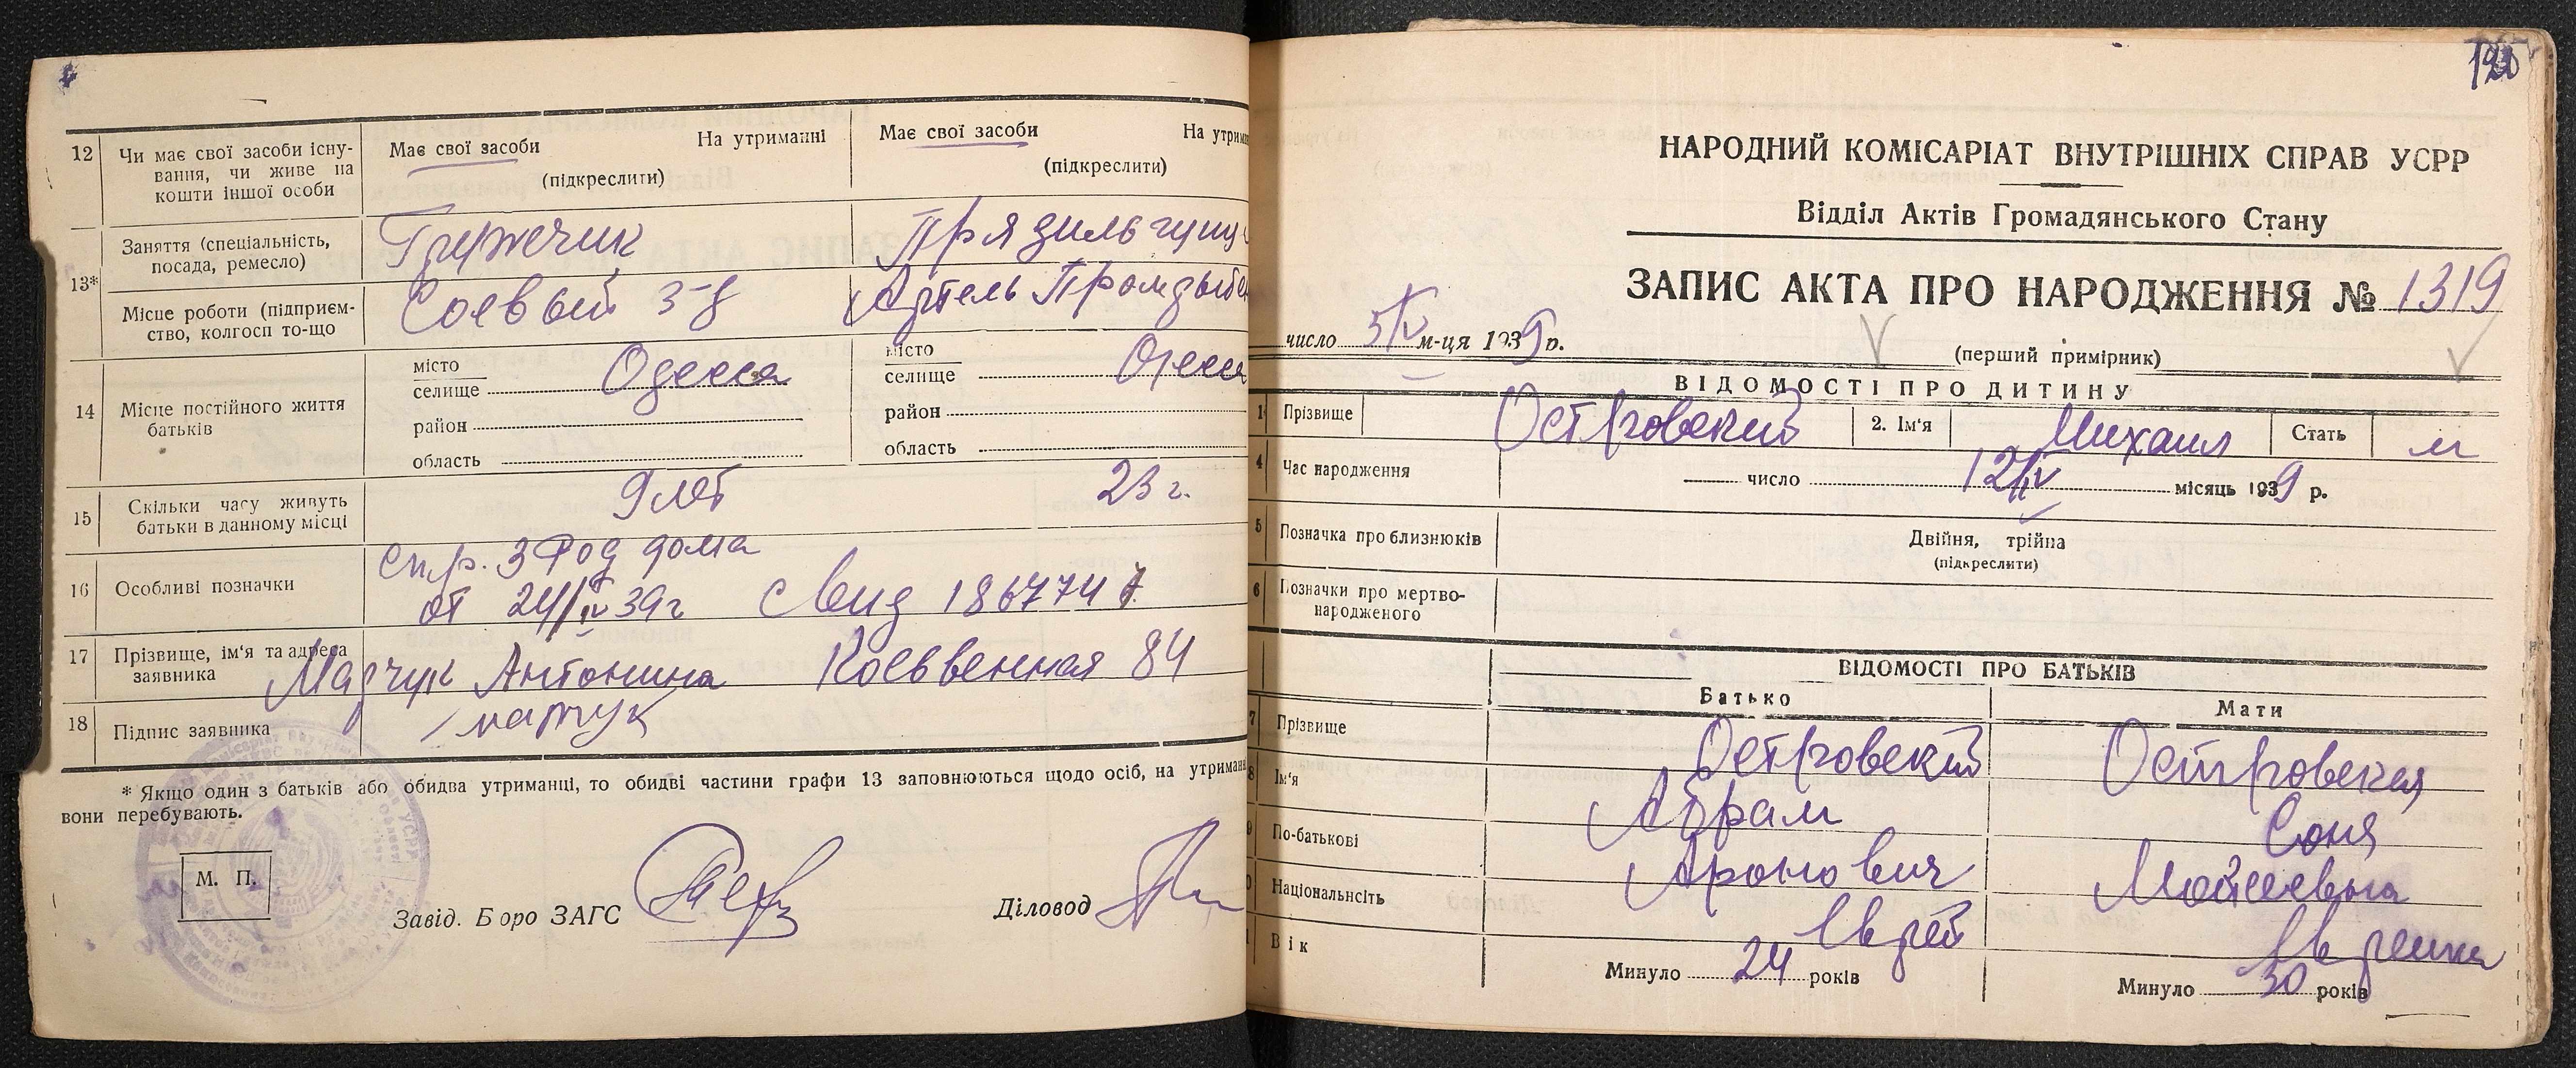 12 Чи має свої засоби існу-
вання, чи живе на
кошти іншої особи
Має свої засоби На утриманні
(підкреслити)
Має свої засоби На утрим
(підкреслити)
13*
Заняття (спеціальність,
посада, ремесло)
Місце роботи (підприєм-
ство, колгосп то-що
Соевый з-д
Артель
14 Місце постійного життя
батьків
місто
селище Одесса
район
область
місто
селище Одесс
район
область
15 Скільки часу живуть
батьки в данному місці
9 лет 23 г.
16 Особливі позначки
спр. 3 Род дома
от 24/IV 39 г
17 Прізвище, ім'я та адреса
заявника
Марчук Антонина 84
18 Підпис заявника
марчук
* Якщо один з батьків або обидва утриманці, то обидві частини графи 13 заповнюються щодо осіб, на утриман
вони перебувають.
М. П.
Завід. Б ро ЗАГС Діловод
НАРОДНИЙ КОМІСАРІАТ ВНУТРІШНІХ СПРАВ УСРР
Відділ Актів Громадянського Стану
ЗАПИС АКТА ПРО НАРОДЖЕННЯ № 1319
число 5/V м-ця 1939 р.
(перший примірник)
ВІДОМОСТІ ПРО ДИТИНУ
1 Прізвище Островский 2. Ім'я Михаил Стать м
4 Час народження число 12/IV місяць 1939 р.
5 Позначка про близнюків Двійня, трійна
(підкреслити)
6 Позначки про мертво-
народженого
ВІДОМОСТІ ПРО БАТЬКІВ
Батько Мати
7 Прізвище Островский Островская
8 Ім'я Абрам Соня
9 По-батькові Аронович Мойсеевна
Національність Еврей Еврейка
Вік Минуло 24 років Минуло 30 років